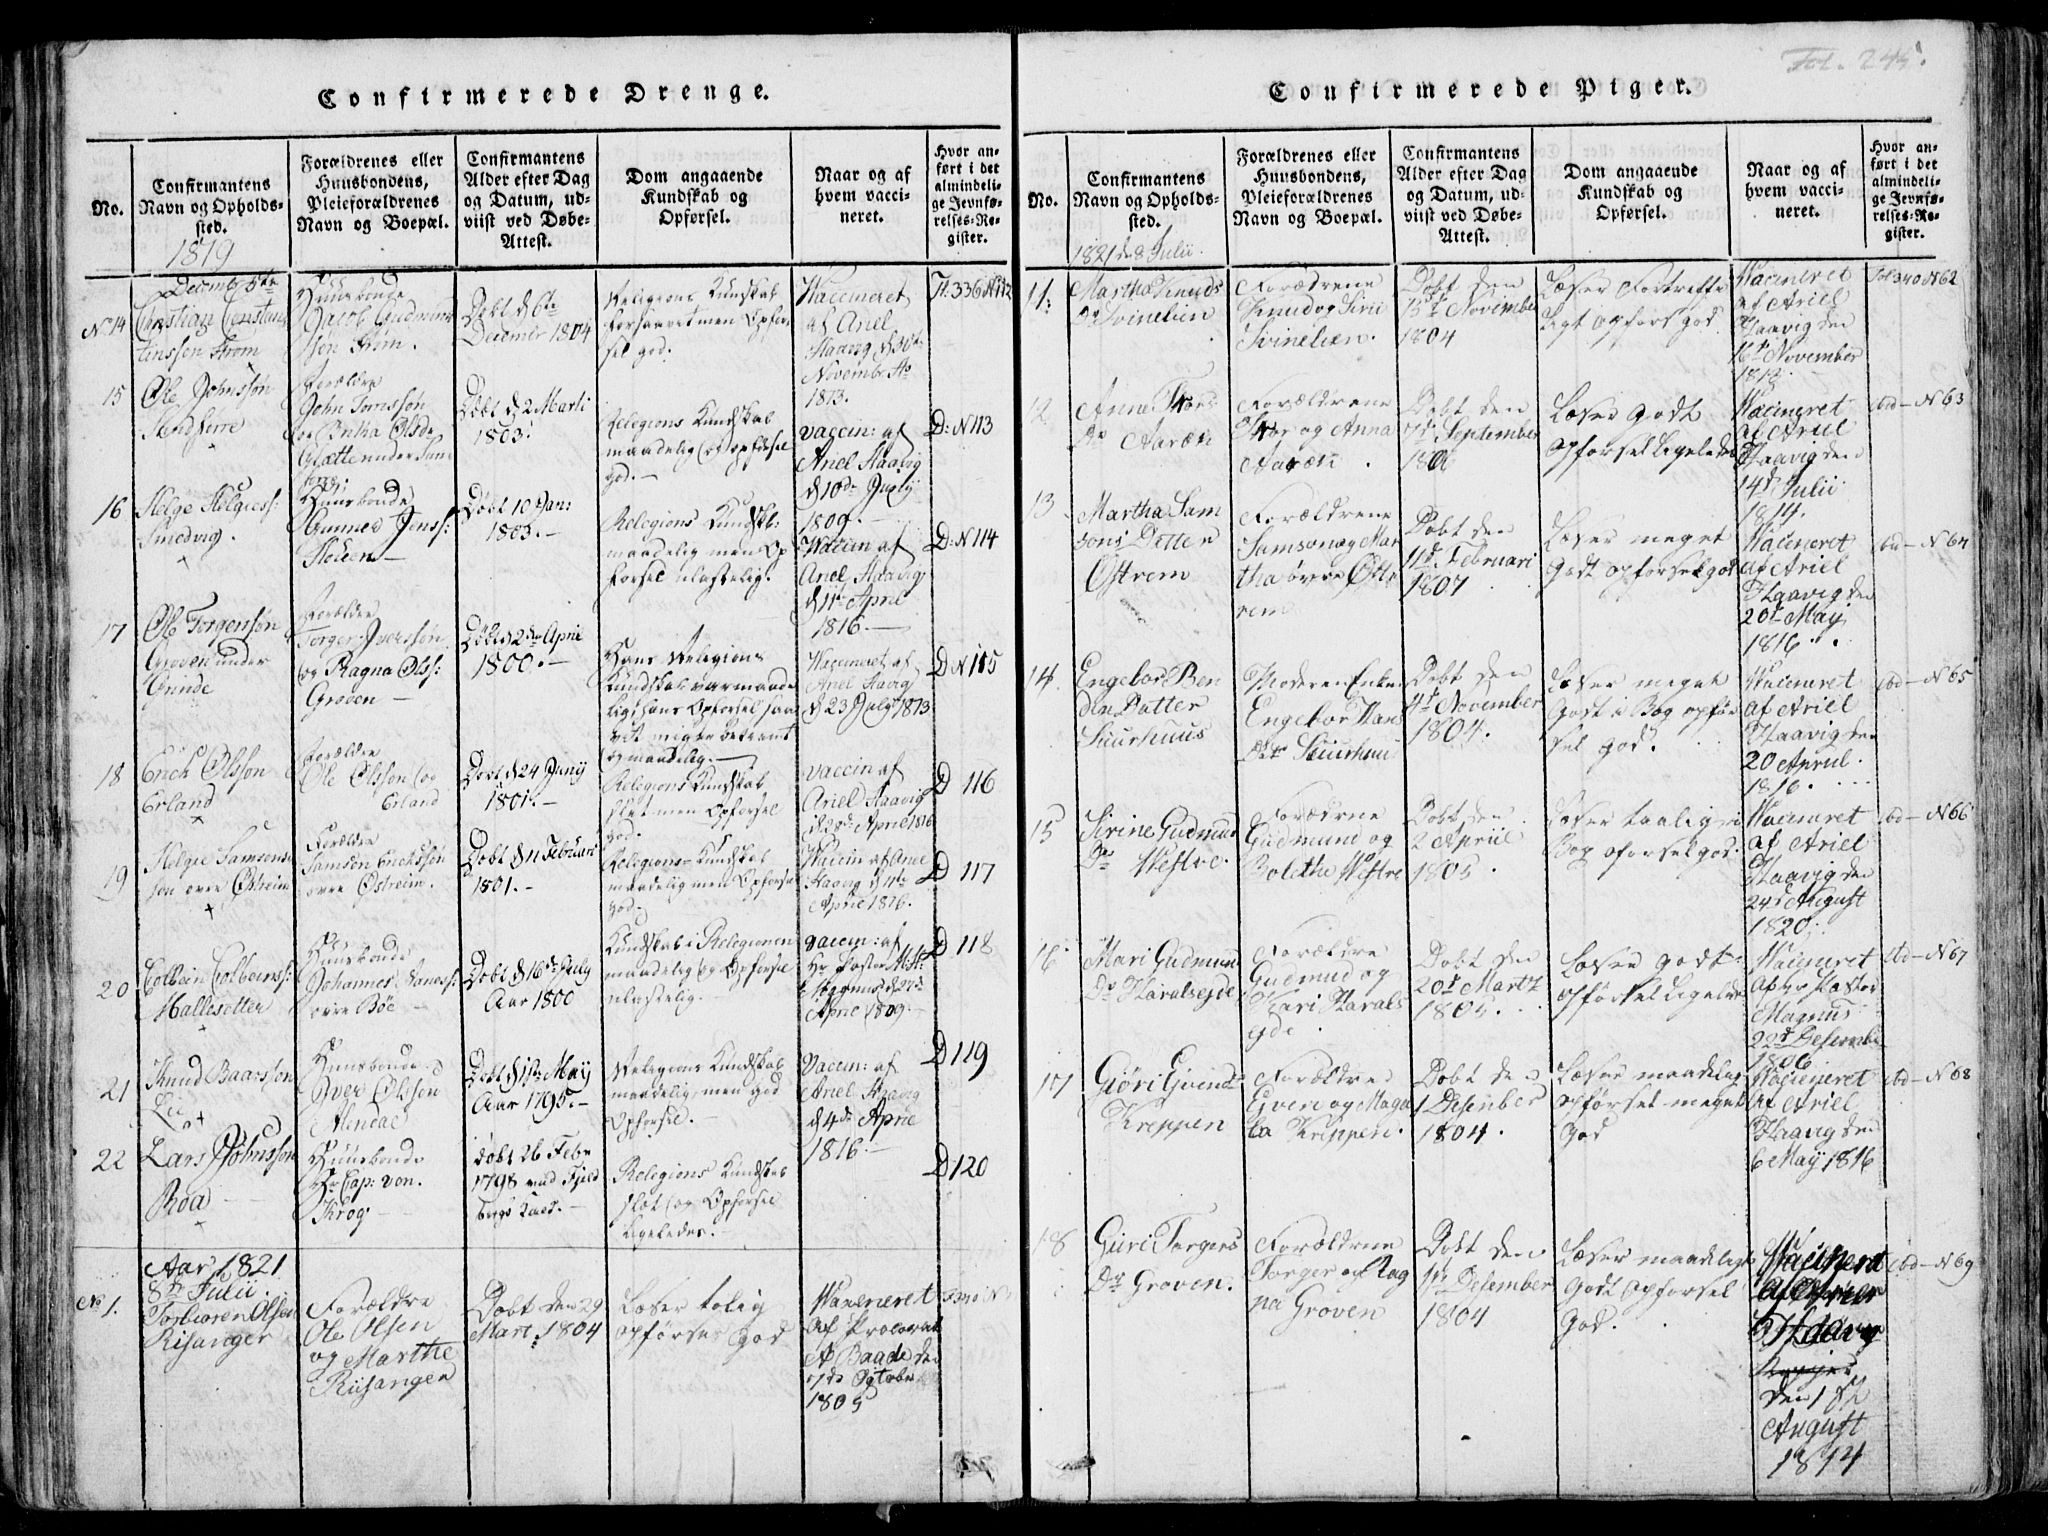 Confirmerede Drenge.
No.
Confirmantens
Navn og Opholds-
sted.
1819
Forældrenes eller
Huusbondens,
Pleieforældrenes
Navn og Boepæl.
Confirmantens
Alder efter Dag
og Datum, ud-
viist ved Døbe-
Attest.
Dom angaaende
Kundskab og
Opførsel.
Naar og af
hvem vacci-
neret.
Hvor an-
ført i det
almindeli-
ge Jevnfø-
relses-Re-
gister.
Decemb 5te
No 14
Christian
Strøm
Huusbonde
Jacob
Strøm.
Døbt d 6te
Decembr 1804
Religions Kundskab
men Opfør-
sel god.
Waccineret
af Ariel
Haavig d 30te
Novembr
1813.
336 N 112
15
Ole Johnssøn
Forældre
John
og Britha Olsdr
under
Døbt d 2 Marti
1803.
Religions Kundskab
maadelig og Opførsel
god.
vaccin: af
Ariel Haavig
d 10de July
1809.
D: N 113
16
Helge Helgess:
Smedvig.
Huusbonde
Gunner Jenss:
Døbt 10 Jan:
1803.
Religions Kundsk:
maadelig men Op
førsel ulastelig.
Waccin af
Ariel Haavig
d 11te April
1816
D: N 114
17
Ole Torgerssøn
Groven under
Grinde
Forældre
Torger Iverssøn
og Ragna Olsd:
Groven
Døbt d 2den April
1800.
Hans Religions
Kundskab var maade
lig, hans Opførsel saa
vit migen bekiemt
og maadelig.
Waccineret af
Ariel Haavig
d 23 July 1813
D N 115
18
Erich Olsson
Erland
Forældre
Ole Olsson
Erland
Døbt d 24 Juny
1801.
Religions Kundskab
slet men Opførsel
god.
vaccin af
Ariel Haavig
d 28de April 1816
D 116
19
Helge Samsons
søn øvre Østreim
Forældre
Samson Erichssøn
øvre Østreim.
Døbt d 11 Februari
1801.
Religions Kundskab
maadelig men Opførsel
god.
Waccin af Ariel
Haavig d 11te
April 1816.
D 117
20
Colbein Colbeins:
Hallesetter
Huusbonde
Johannes
øvre Bøe
Døbt d 16de July
Aar 1800
Kundskab i Religionen
maadelig og Opførsel
ulastelig.
Vaccin: af
Hr Pastor
Magnus d 27de
April 1809.
D 118
21
Knud Baarssøn
Lie
Huusbonde
Iver Olssøn
Døbt d 1ste May
Aar 1795
Religions Kundskab
maadelig, men god
Opførsel.
Vaccin: af
Ariel Haavig
d 4de April
1816.
D 119
22
Lars Johnssøn
Roa
Huusbonde
Hr Cap: von
Krog
Døbt 26 Febr
1798 ved Fjeld
bergs Kald.
Religions Kundskab
slet og Opførsel
ligeledes.
D 120
Aar 1821
8de Julii
No 1.
Torbiøren Olsen
Risanger
Forældre
Ole Olsen
og Marthe
Riisanger
Døbt den 29
Mart 1804
Læser tolig
opførsel God
Waxeneret
af
A Baade den
1805
Confirmerede Piger.
Fol. 245.
No.
Confirmantens
Navn og Opholds-
sted.
1821 d 8 Julii
Forældrenes eller
Huusbondens,
Pleieforældrenes
Navn og Boepæl.
Confirmantens
Alder efter Dag
og Datum, ud-
viist ved Døbe-
Attest.
Dom angaaende
Kundskab og
Opførsel.
Naar og af
hvem vacci-
neret.
Hvor an-
ført i det
almindeli-
ge Jevnfø-
relses-Re-
gister.
11.
Martha Knuds
Dr Svinelien
Forældrene
Knud og Siri
Svinelien.
Døbt den
15de November
1804
Læser Fortreffe
ligt opførs god.
Waccineret
af Ariel
Haavig den
16de November
Fol 340 N 62
12
Anne Thors
Dr Aareth
Forældrene
Thor og Anna
Døbt den
7de September
Læser Godt
opførsel ligeledes
Waccineret
af Ariel
Haavig den
14de Julii
1814.
ibd— N 63
13
Martha Sam
sons Detter
Østrem
Forældrene
Samson og Mar
tha øvre Øst
rem
Døbt den
11te Februari
1807
Læser meget
Godt opførsel god
Waccineret
af Ariel
Haavig den
20de May
1816
ibd— N 64
14
Engebor Ben
dix Datter
Suurhuus
Moderen Enken
Engebor Hans
Dtr Suurhuus
Døbt den
4de November
1804.
Læser meget
Godt i Bog opfør
sel god.
Waccineret
af Ariel
Haavig den
20 April
1816.
ibd— N 65
15
Sirine Gudmund
Dr Westre
Forældrene
Gudmund og
Bolethe Westre
Døbt den
2 April
1805
Læser taalig i
Bog oførsel god.
Waccineret
af Ariel
Haavig den
24de August
1820.
ibd— N 66
16
Mari Gudmun
Dr Haralseyde
Forældre
Gudmud og
Kari Harals
eyde.
Døbt den
20de Martz
1805.
Læser godt
opførsel ligeledes
Waccineret
Af Hr Pastor
Magnus
22de Desember
1806
ibd— N 67
17
Giøri
Kreppen
Forældre
og Maga
la Kreppen.
Døbt den
1 Desember
1804.
Læser maadelig
opførsel meget
God
Waccineret
af Ariel
Haavig den
6 May 1816
ibd— N 68
18
Giøri Torgers
Dr Groven.
Forældrene
Torger og Rag
na Groven
Døbt den
1de Desember
1804
Læser maadeligt
Godt opførsel
God.
Waccinerd
Af Ariel
Haavig
den 1
August
1814
ibd— N 69